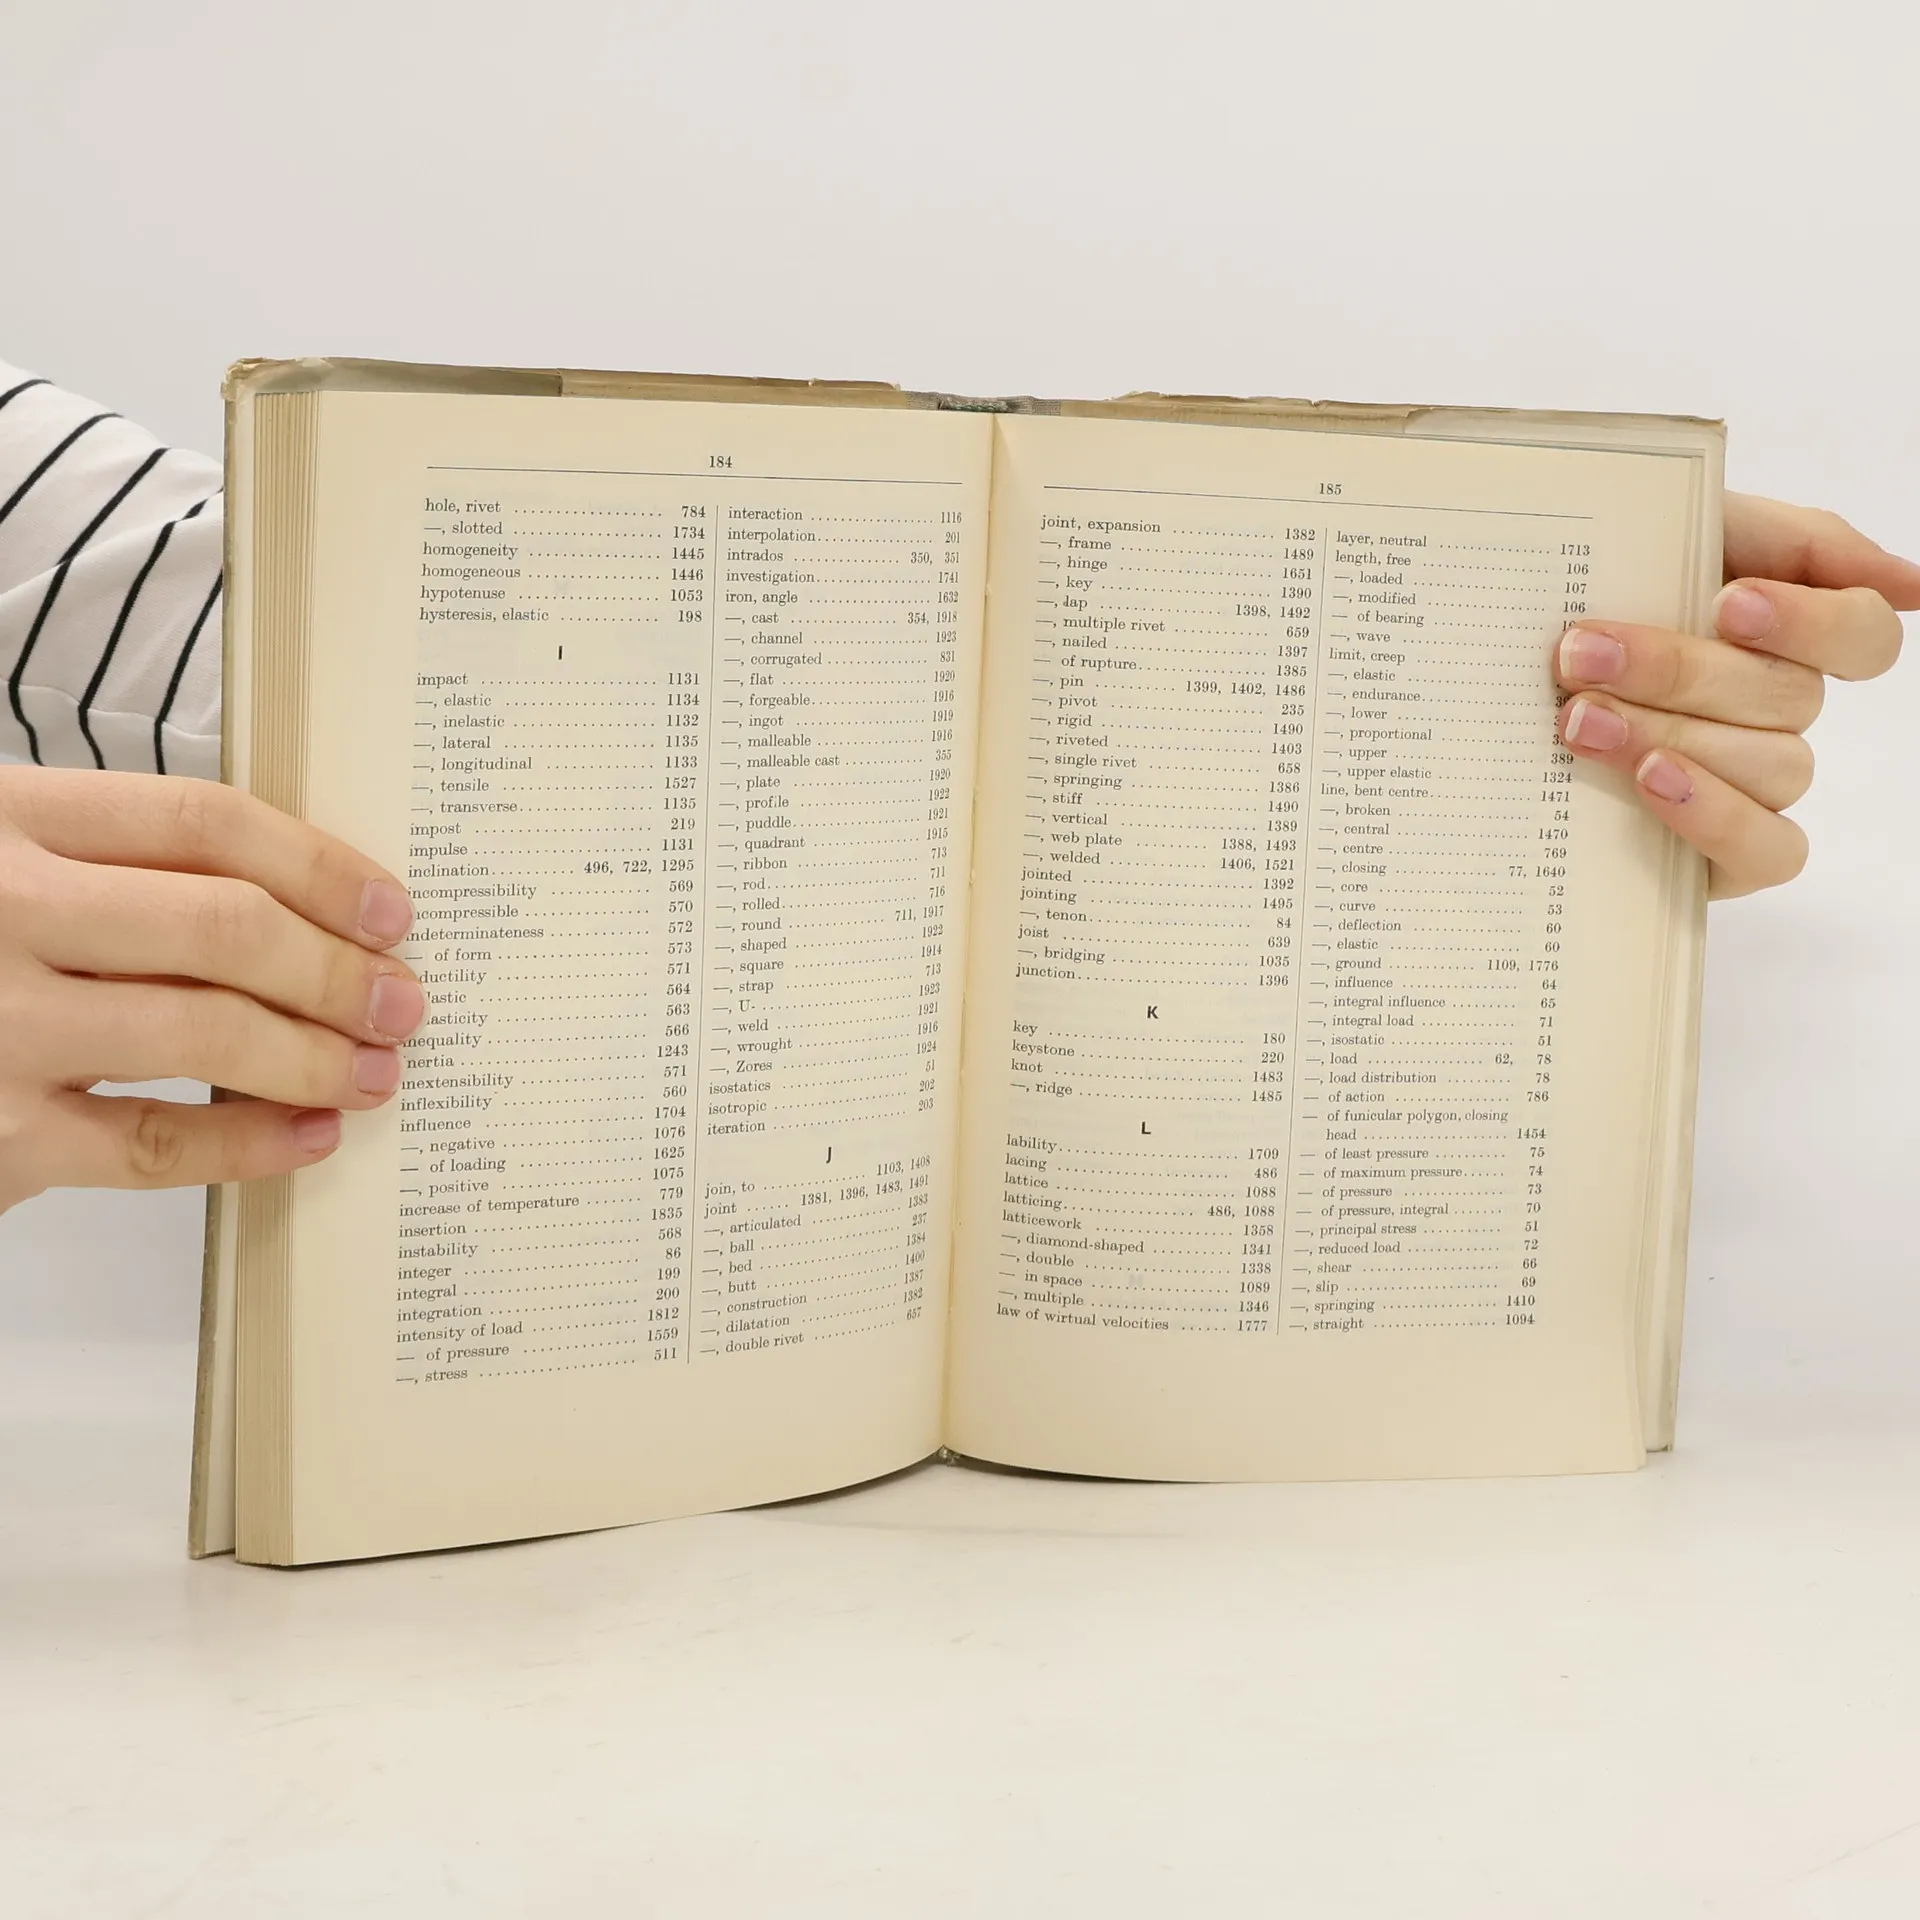 184
hole, rivet .................. 784
—, slotted ................ 1734
homogeneity .............. 1445
homogeneous .............. 1446
hypotenuse ............... 1053
hysteresis, elastic ............ 198
I
impact .................... 1131
—, elastic ................. 1134
—, inelastic ................ 1132
—, lateral ................. 1135
—, longitudinal ............ 1133
—, tensile ................. 1527
—, transverse.............. 1135
impost .................... 219
impulse.................... 1131
inclination.......... 496, 722, 1295
incompressibility ............ 569
incompressible ............... 570
indeterminateness ............ 572
— of form .................. 573
ductility ................... 571
lastic ..................... 564
lasticity ................... 563
inequality ................... 566
inertia ..................... 1243
inextensibility ............... 571
inflexibility ................. 560
influence .................. 1704
—, negative ................ 1076
— of loading ............... 1625
—, positive ................ 1075
increase of temperature ....... 779
insertion ................... 1835
instability .................. 568
integer ..................... 86
integral .................... 199
integration .................. 200
intensity of load ............. 1812
— of pressure .............. 1559
—, stress ................... 511
interaction ................. 1116
interpolation................. 201
intrados ............... 350, 351
investigation................. 1741
iron, angle .................. 1632
—, cast ............... 354, 1918
—, channel ................ 1923
—, corrugated .............. 831
—, flat .................... 1920
—, forgeable................ 1916
—, ingot ................... 1919
—, malleable ............... 1916
—, malleable cast ........... 355
—, plate ................... 1920
—, profile .................. 1922
—, puddle.................. 1921
—, quadrant ................ 1915
—, ribbon .................. 713
—, rod..................... 711
—, rolled................... 716
—, round .............. 711, 1917
—, shaped .................. 1922
—, square .................. 1914
—, strap ................... 713
—, U- ..................... 1923
—, weld ................... 1921
—, wrought ................ 1916
—, Zores ................... 1924
isostatics ................... 51
isotropic .................... 202
iteration .................... 203
J
join, to ............... 1103, 1408
joint ...... 1381, 1396, 1483, 1491
—, articulated .............. 1383
—, ball .................... 237
—, bed .................... 1384
—, butt .................... 1400
—, construction ............. 1387
—, dilatation ............... 1382
—, double rivet ............. 657
185
joint, expansion ............ 1382
—, frame .................. 1489
—, hinge .................. 1651
—, key .................... 1390
—, lap ............... 1398, 1492
—, multiple rivet ............ 659
—, nailed .................. 1397
— of rupture............... 1385
—, pin .......... 1399, 1402, 1486
—, pivot ................... 235
—, rigid ................... 1490
—, riveted ................. 1403
—, single rivet .............. 658
—, springing ............... 1386
—, stiff .................... 1490
—, vertical ................. 1389
—, web plate ......... 1388, 1493
—, welded ............ 1406, 1521
jointed ..................... 1392
jointing .................... 1495
—, tenon................... 84
joist ....................... 639
—, bridging ................ 1035
junction.................... 1396
K
key ....................... 180
keystone .................... 220
knot ....................... 1483
—, ridge ................... 1485
L
lability..................... 1709
lacing ...................... 486
lattice ..................... 1088
latticing................ 486, 1088
latticework ................. 1358
—, diamond-shaped .......... 1341
—, double .................. 1338
— in space ................ 1089
—, multiple ................ 1346
law of wirtual velocities ...... 1777
layer, neutral ............... 1713
length, free ................. 106
—, loaded .................. 107
—, modified ................ 106
— of bearing ...............
—, wave ...................
limit, creep .................
—, elastic ..................
—, endurance...............
—, lower ...................
—, proportional .............
—, upper ................... 389
—, upper elastic ............ 1324
line, bent centre............. 1471
—, broken .................. 54
—, central .................. 1470
—, centre ................... 769
—, closing ............. 77, 1640
—, core .................... 52
—, curve ................... 53
—, deflection ............... 60
—, elastic .................. 60
—, ground ........... 1109, 1776
—, influence ................ 64
—, integral influence ......... 65
—, integral load ............. 71
—, isostatic ................. 51
—, load ................ 62, 78
—, load distribution .......... 78
— of action ................ 786
— of funicular polygon, closing
head .................... 1454
— of least pressure .......... 75
— of maximum pressure...... 74
— of pressure .............. 73
— of pressure, integral ....... 70
—, principal stress ........... 51
—, reduced load ............. 72
—, shear ................... 66
—, slip ..................... 69
—, springing ................ 1410
—, straight ................. 1094